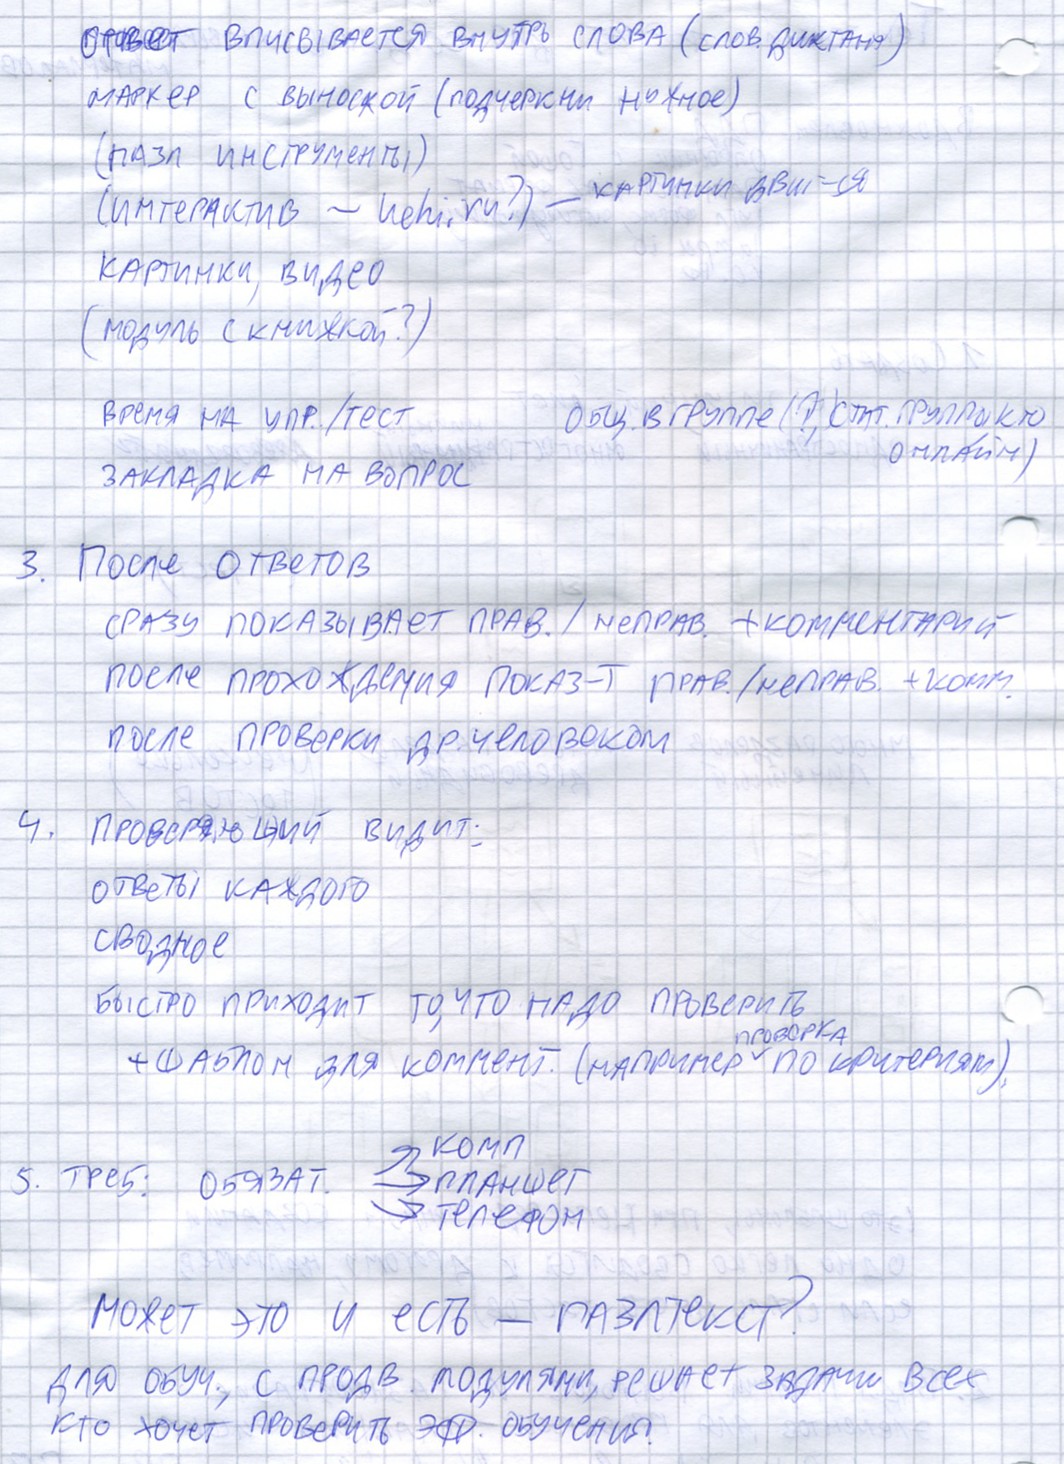 ответ вписывается внутрь слова (слов. диктант)
маркер с выноской (подчеркни нужное)
(пазл инструменты)
(интерактив – uchi.ru?) – картинки двиг-ся
картинки, видео
(модуль с книжкой?)
время на упр./тест общ. в группе (?, стат. группы кто онлайн)
закладка на вопрос
3. После ответов
сразу показывает прав./неправ. + комментарий
после прохождения показ-т прав./неправ. + комм.
после проверки др. человеком
4. проверяющий видит:
ответы каждого
сводное
быстро приходит то, что надо проверить
+ шаблон для коммент. (например проверка по критериям),
5. треб: обязат. комп
планшет
телефон
может это и есть – пазлтекст?
для обуч., с продв. модулями, решает задачи всех
кто хочет проверить эф. обучения!